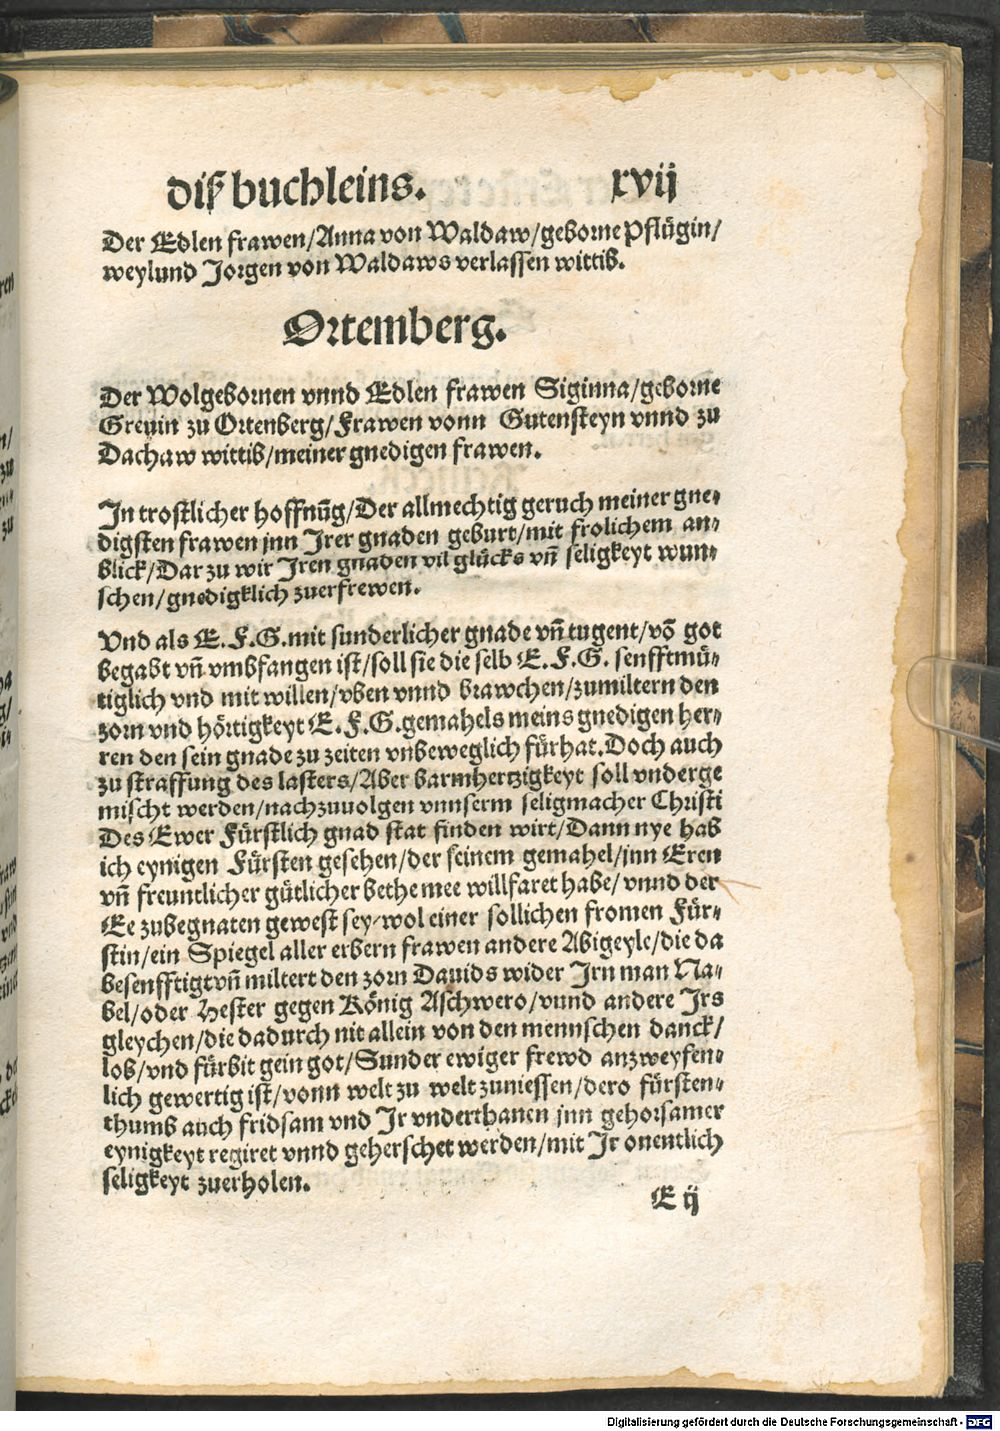 diß buchleins. xvij
Der Edlen frawen/Anna von Waldaw/geborne Pflügin/
weylund Jorgen von Waldaws verlassen wittib.
Ortemberg.
Der Wolgebornen vnnd Edlen frawen Siginna/geborne
Greuin zu Ortenberg/Frawen vonn Gutensteyn vnnd zu
Dachaw wittib/meiner gnedigen frawen.
In trostlicher hoffnūg/Der allmechtig geruch meiner gne⸗
digsten frawen jnn Jrer gnaden geburt/mit frolichem an⸗
blick/Dar zu wir Jren gnaden vil glücks vn̄ seligkeyt wun⸗
schen/gnedigklich zuerfrewen.
Vnd als E. F. G. mit sunderlicher gnade vn̄ tugent/vō got
begabt vn̄ vmbfangen ist/soll sie die selb E. F. G. senfftmü⸗
tiglich vnd mit willen/vben vnnd brawchen/zumiltern den
zorn vnd hörtigkeyt E. F. G. gemahels meins gnedigen her⸗
ren den sein gnade zu zeiten vnbeweglich fürhat. Doch auch
zu straffung des lasters/Aber barmhertzigkeyt soll vnderge
mischt werden/nachzuuolgen vnnserm seligmacher Christi
Des Ewer Fürstlich gnad stat finden wirt/Dann nye hab
ich eynigen Fürsten gesehen/der seinem gemahel/jnn Eren
vn̄ freuntlicher gütlicher bethe mee willfaret habe/vnnd der
Ee zubegnaten gewest sey/wol einer sollichen fromen Für⸗
stin/ein Spiegel aller erbern frawen andere Abigeyle/die da
besenfftigt vn̄ miltert den zorn Dauids wider Jrn man Na⸗
bel/oder Hester gegen König Aschwero/vnnd andere Jrs
gleychen/die dadurch nit allein von den mennschen danck/
lob/vnd fürbit gein got/Sunder ewiger frewd anzweyfen⸗
lich gewertig ist/vonn welt zu welt zuniessen/dero fürsten⸗
thumb auch fridsam vnd Jr vnderthanen jnn gehorsamer
eynigkeyt regiret vnnd geherschet werden/mit Jr onentlich
seligkeyt zuerholen.
E ij
Digitalisierung gefördert durch die Deutsche Forschungsgemeinschaft - DFG